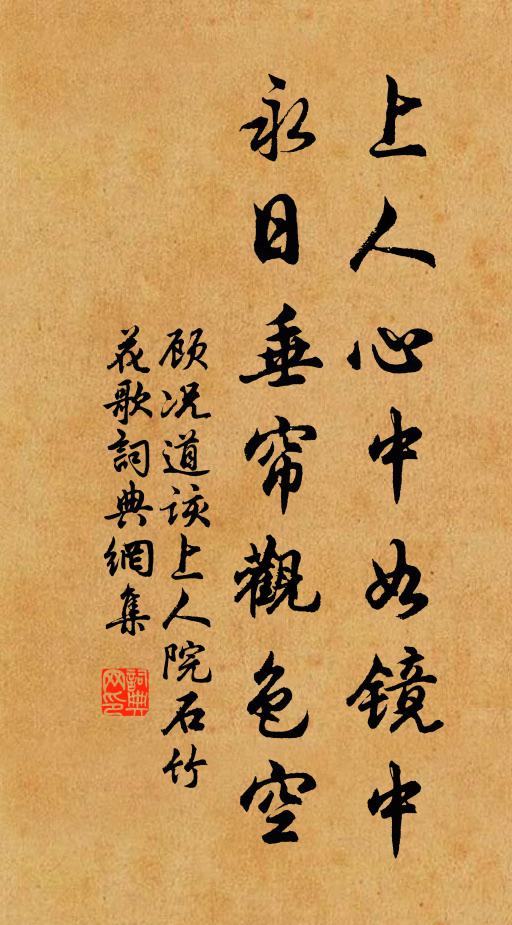 上人心中如镜中
永日垂帘觀色空
顾况道该上人院石竹
花歌詞典網集
詞典网印